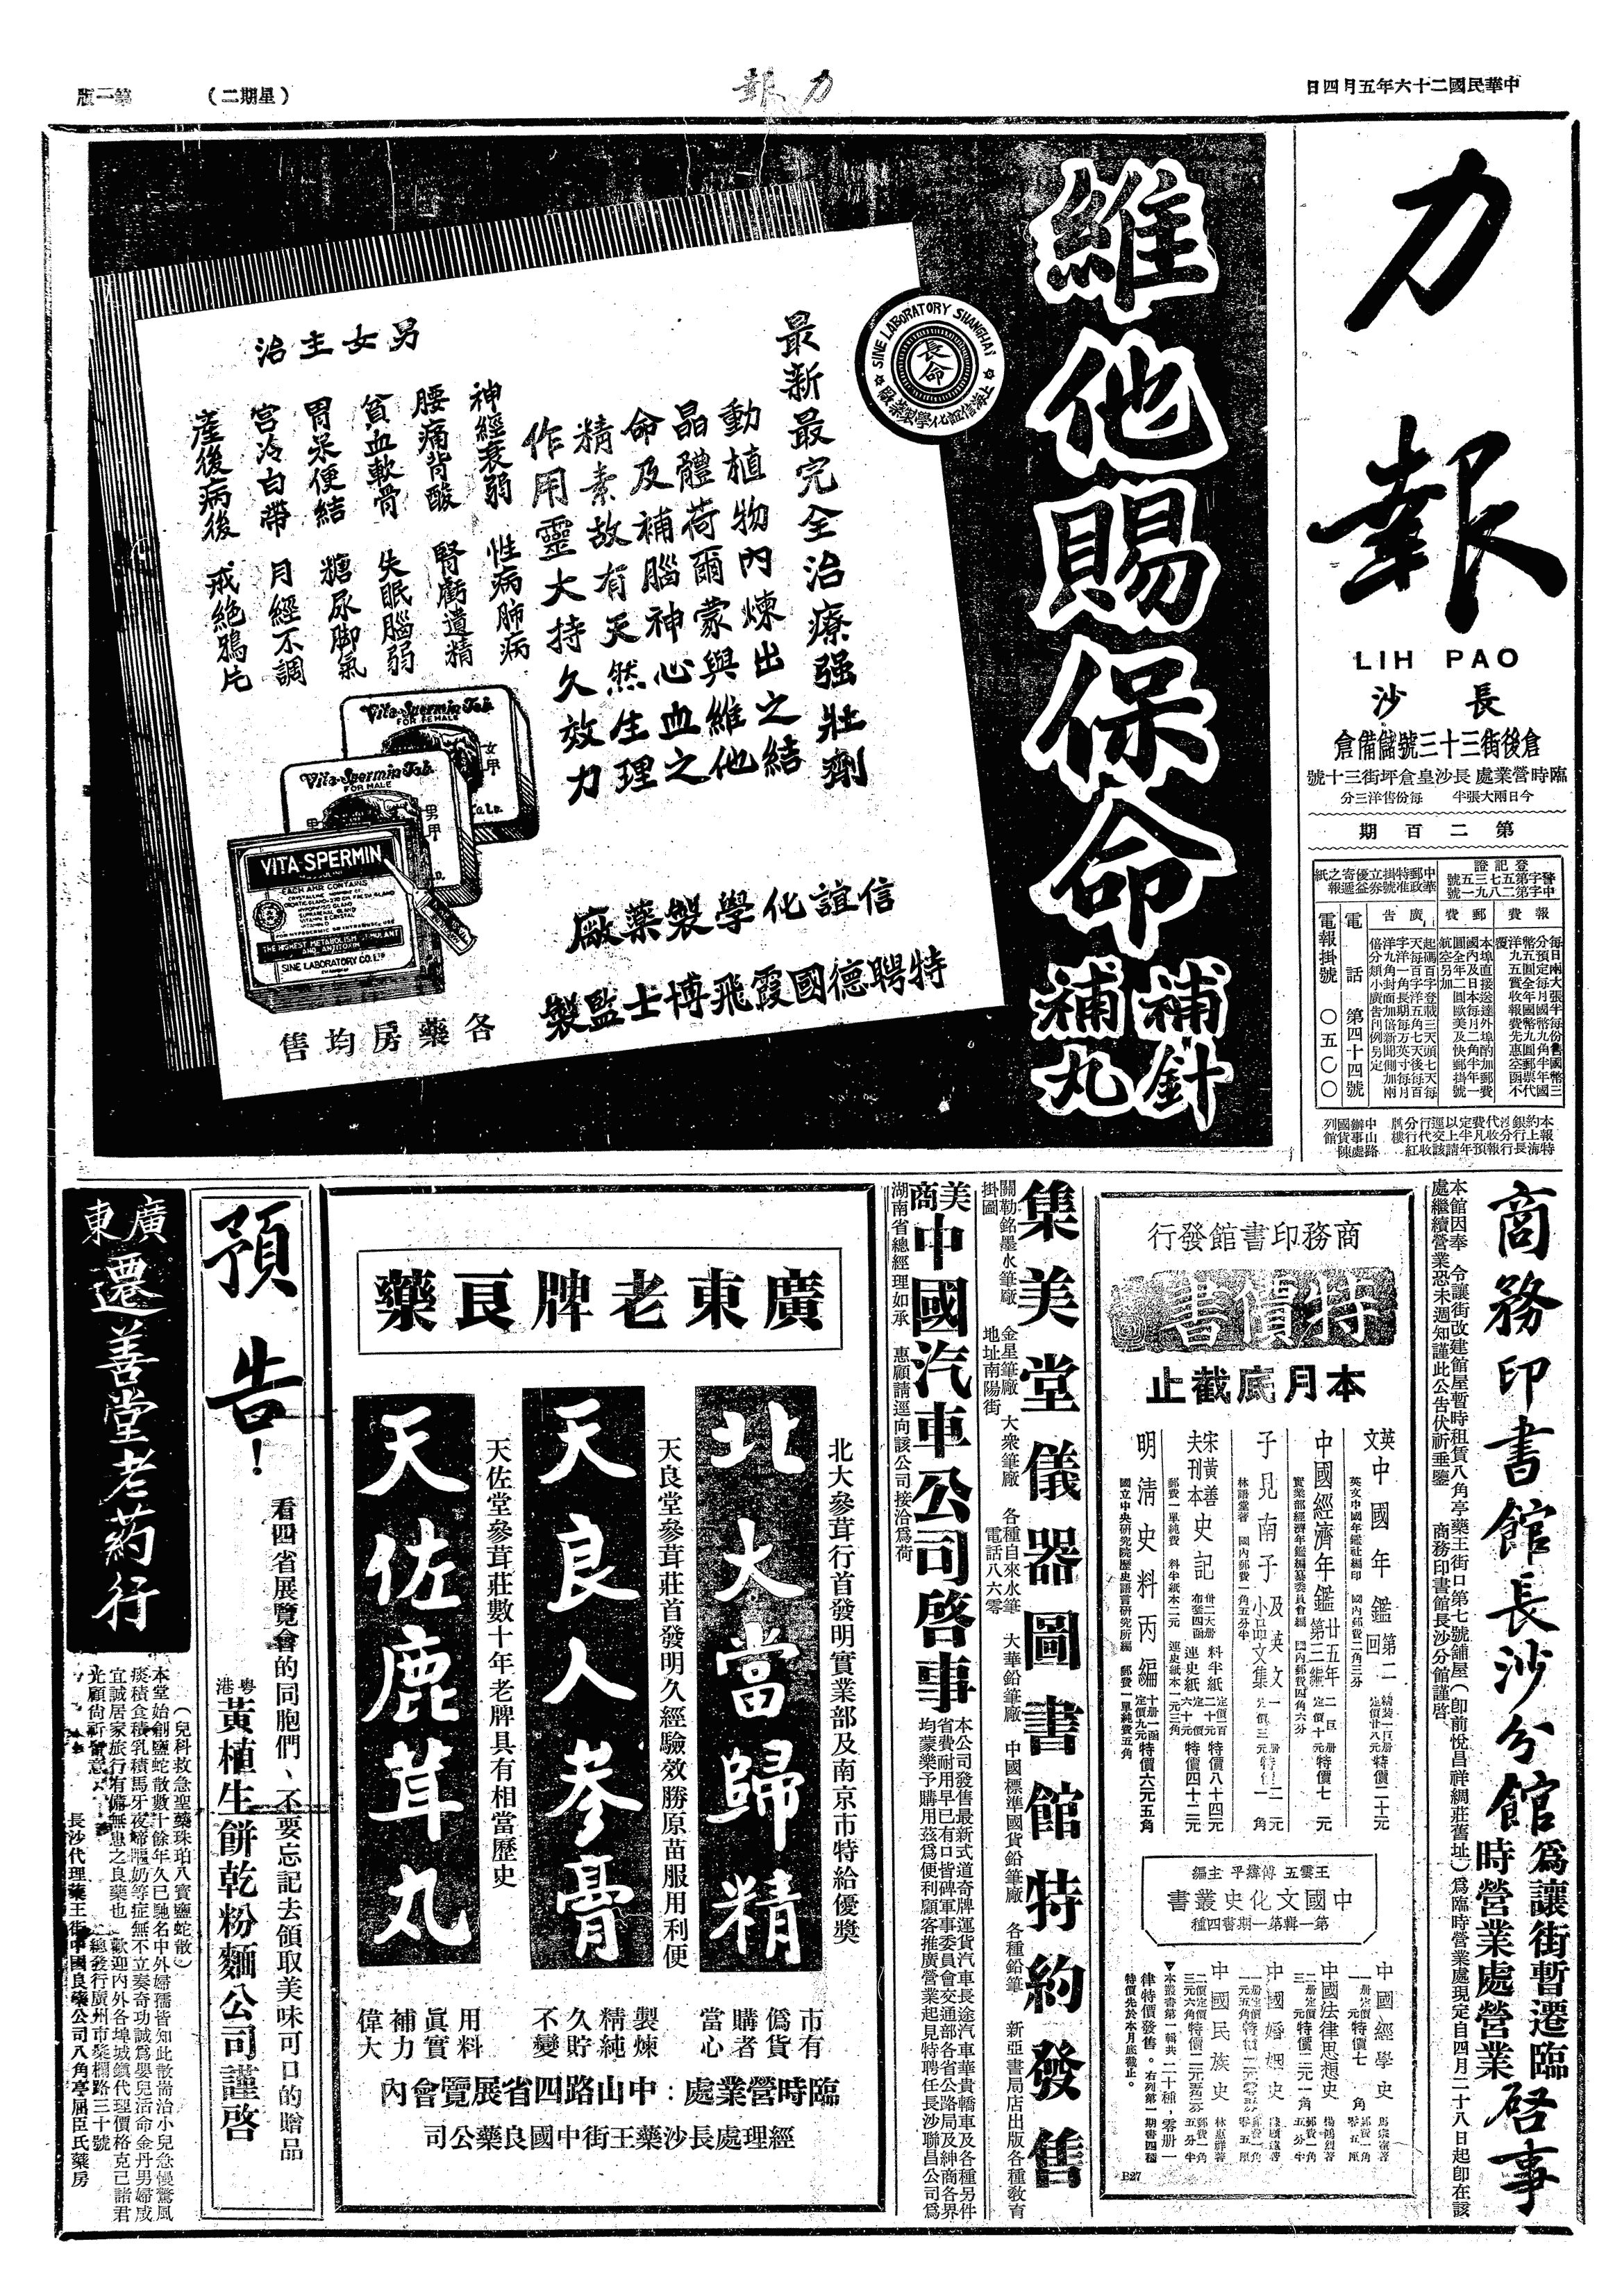 中華民國二十六年五月四日
力報
（星期二）
第一版
力報
LIH PAO
長沙
倉後街三十三號儲備倉
臨時營業處長沙皇倉坪街三十號
今日兩大張半　每份售洋三分
第二百期
登記證
警字第五七三五號
中字第二八九一號
中華郵政特准掛號立券優益寄遞之報紙
報費
每日兩大張半每份售國幣三分預定每月國幣九角半年國幣五圓全年國幣九圓郵票代洋九五實收報費先惠空函不覆
郵費
本埠直接送達外埠酌加郵費國內及日本每月二角半年一圓全年二圓歐美及快郵掛號航空另加
廣告
電話　第四十四號
電報掛號　〇五〇〇
維他賜保命
補針
補丸
SINE LABORATORY SHANGHAI
長命
上海信誼化學製藥廠
最新最完全治療强壯劑
動植物內煉出之結
晶體荷爾蒙與維他
命及補腦神心血之
精素故有天然生理
作用靈大持久效力
男女主治
神經衰弱　性病肺病
腰痛背酸　腎虧遺精
貧血軟骨　失眠腦弱
胃呆便結　糖尿脚氣
宮冷白帶　月經不調
產後病後　戒絕鴉片
Vita-Spermin Tab.
FOR FEMALE
女甲
Vita-Spermin Tab.
FOR MALE
男甲
VITA-SPERMIN
EACH AMP. CONTAINS
THE HIGHEST METABOLISM STIMULANT
AND ANTITOXIN
SINE LABORATORY CO. LTD
信誼化學製藥廠
特聘德國霞飛博士監製
各藥房均售
商務印書館長沙分館爲讓街暫遷臨時營業處營業啓事
本館因奉　令讓街改建館屋暫時租賃八角亭藥王街口第七號舖屋（卽前悅昌祥綢莊舊址）爲臨時營業處現定自四月二十八日起卽在該
處繼續營業恐未週知謹此公告伏祈垂鑒　商務印書館長沙分館謹啓
商務印書館發行
特價書
本月底截止
英文中國年鑑第二回
英文中國年鑑社編印　國內郵費二角三分
精裝一百册定價廿八元特價二十元
中國經濟年鑑廿五年第三編
實業部經濟年鑑編纂委員會編　國內郵費四角六分
特價七元
子見南子及英文小品文集
林語堂著　國內郵費一角五分半
宋黃善夫刊本史記
特價八十四元
特價四十二元
明清史料丙編
國立中央研究院歷史語言研究所編　郵費一單純費五角
十册一函定價九元特價六元五角
王雲五　傅緯平　主編
中國文化史叢書
第一輯第一期書四種
中國經學史
中國法律思想史
中國婚姻史
中國民族史
▼本叢書第一輯共二十種，零册一律特價發售。右列第一期書四種特價先於本月底截止。
E27
集美堂儀器圖書館特約發售
關勒銘墨水筆廠　金星筆廠　大衆筆廠　各種自來水筆　大華鉛筆廠　中國標準國貨鉛筆廠　各種鉛筆　新亞書局店出版各種教育掛圖
地址南陽街　電話八六零
美商中國汽車公司啓事
本公司發售最新式道奇牌運貨汽車長途汽車華貴轎車及各種另件
省費耐用早已有口皆碑軍事委員會交通部各省公路局及紳商各界
均蒙樂予購用茲爲便利顧客推廣營業起見特聘任長沙聯昌公司爲
湖南省總經理如承　惠顧請逕向該公司接洽爲荷
廣東老牌良藥
北大參茸行首發明實業部及南京市特給優獎
北大當歸精
天良堂參茸莊首發明久經驗效勝原苗服用利便
天良人參膏
天佐堂參茸莊數十年老牌具有相當歷史
天佐鹿茸丸
市有僞貨購者當心
製煉精純久貯不變
用料眞實補力偉大
臨時營業處：中山路四省展覽會內
經理處長沙藥王街中國良藥公司
預告！
看四省展覽會的同胞們、不要忘記去領取美味可口的贈品
粵港黃植生餅乾粉麵公司謹啓
廣東遷善堂老葯行
（兒科救急聖藥珠珀八寶鹽蛇散）
本堂始創鹽蛇散數十餘年久已馳名中外婦孺皆知此散耑治小兒急慢驚風
痰積食積乳積馬牙夜啼嘔奶等症無不立奏奇功誠爲嬰兒活命金丹男婦咸
宜誠居家旅行有備無患之良藥也　歡迎內外各埠城鎮代理價格克己諸君
光顧尙祈留意　總發行廣州市槳欄路三十號
長沙代理藥王街中國良藥公司八角亭屈臣氏藥房